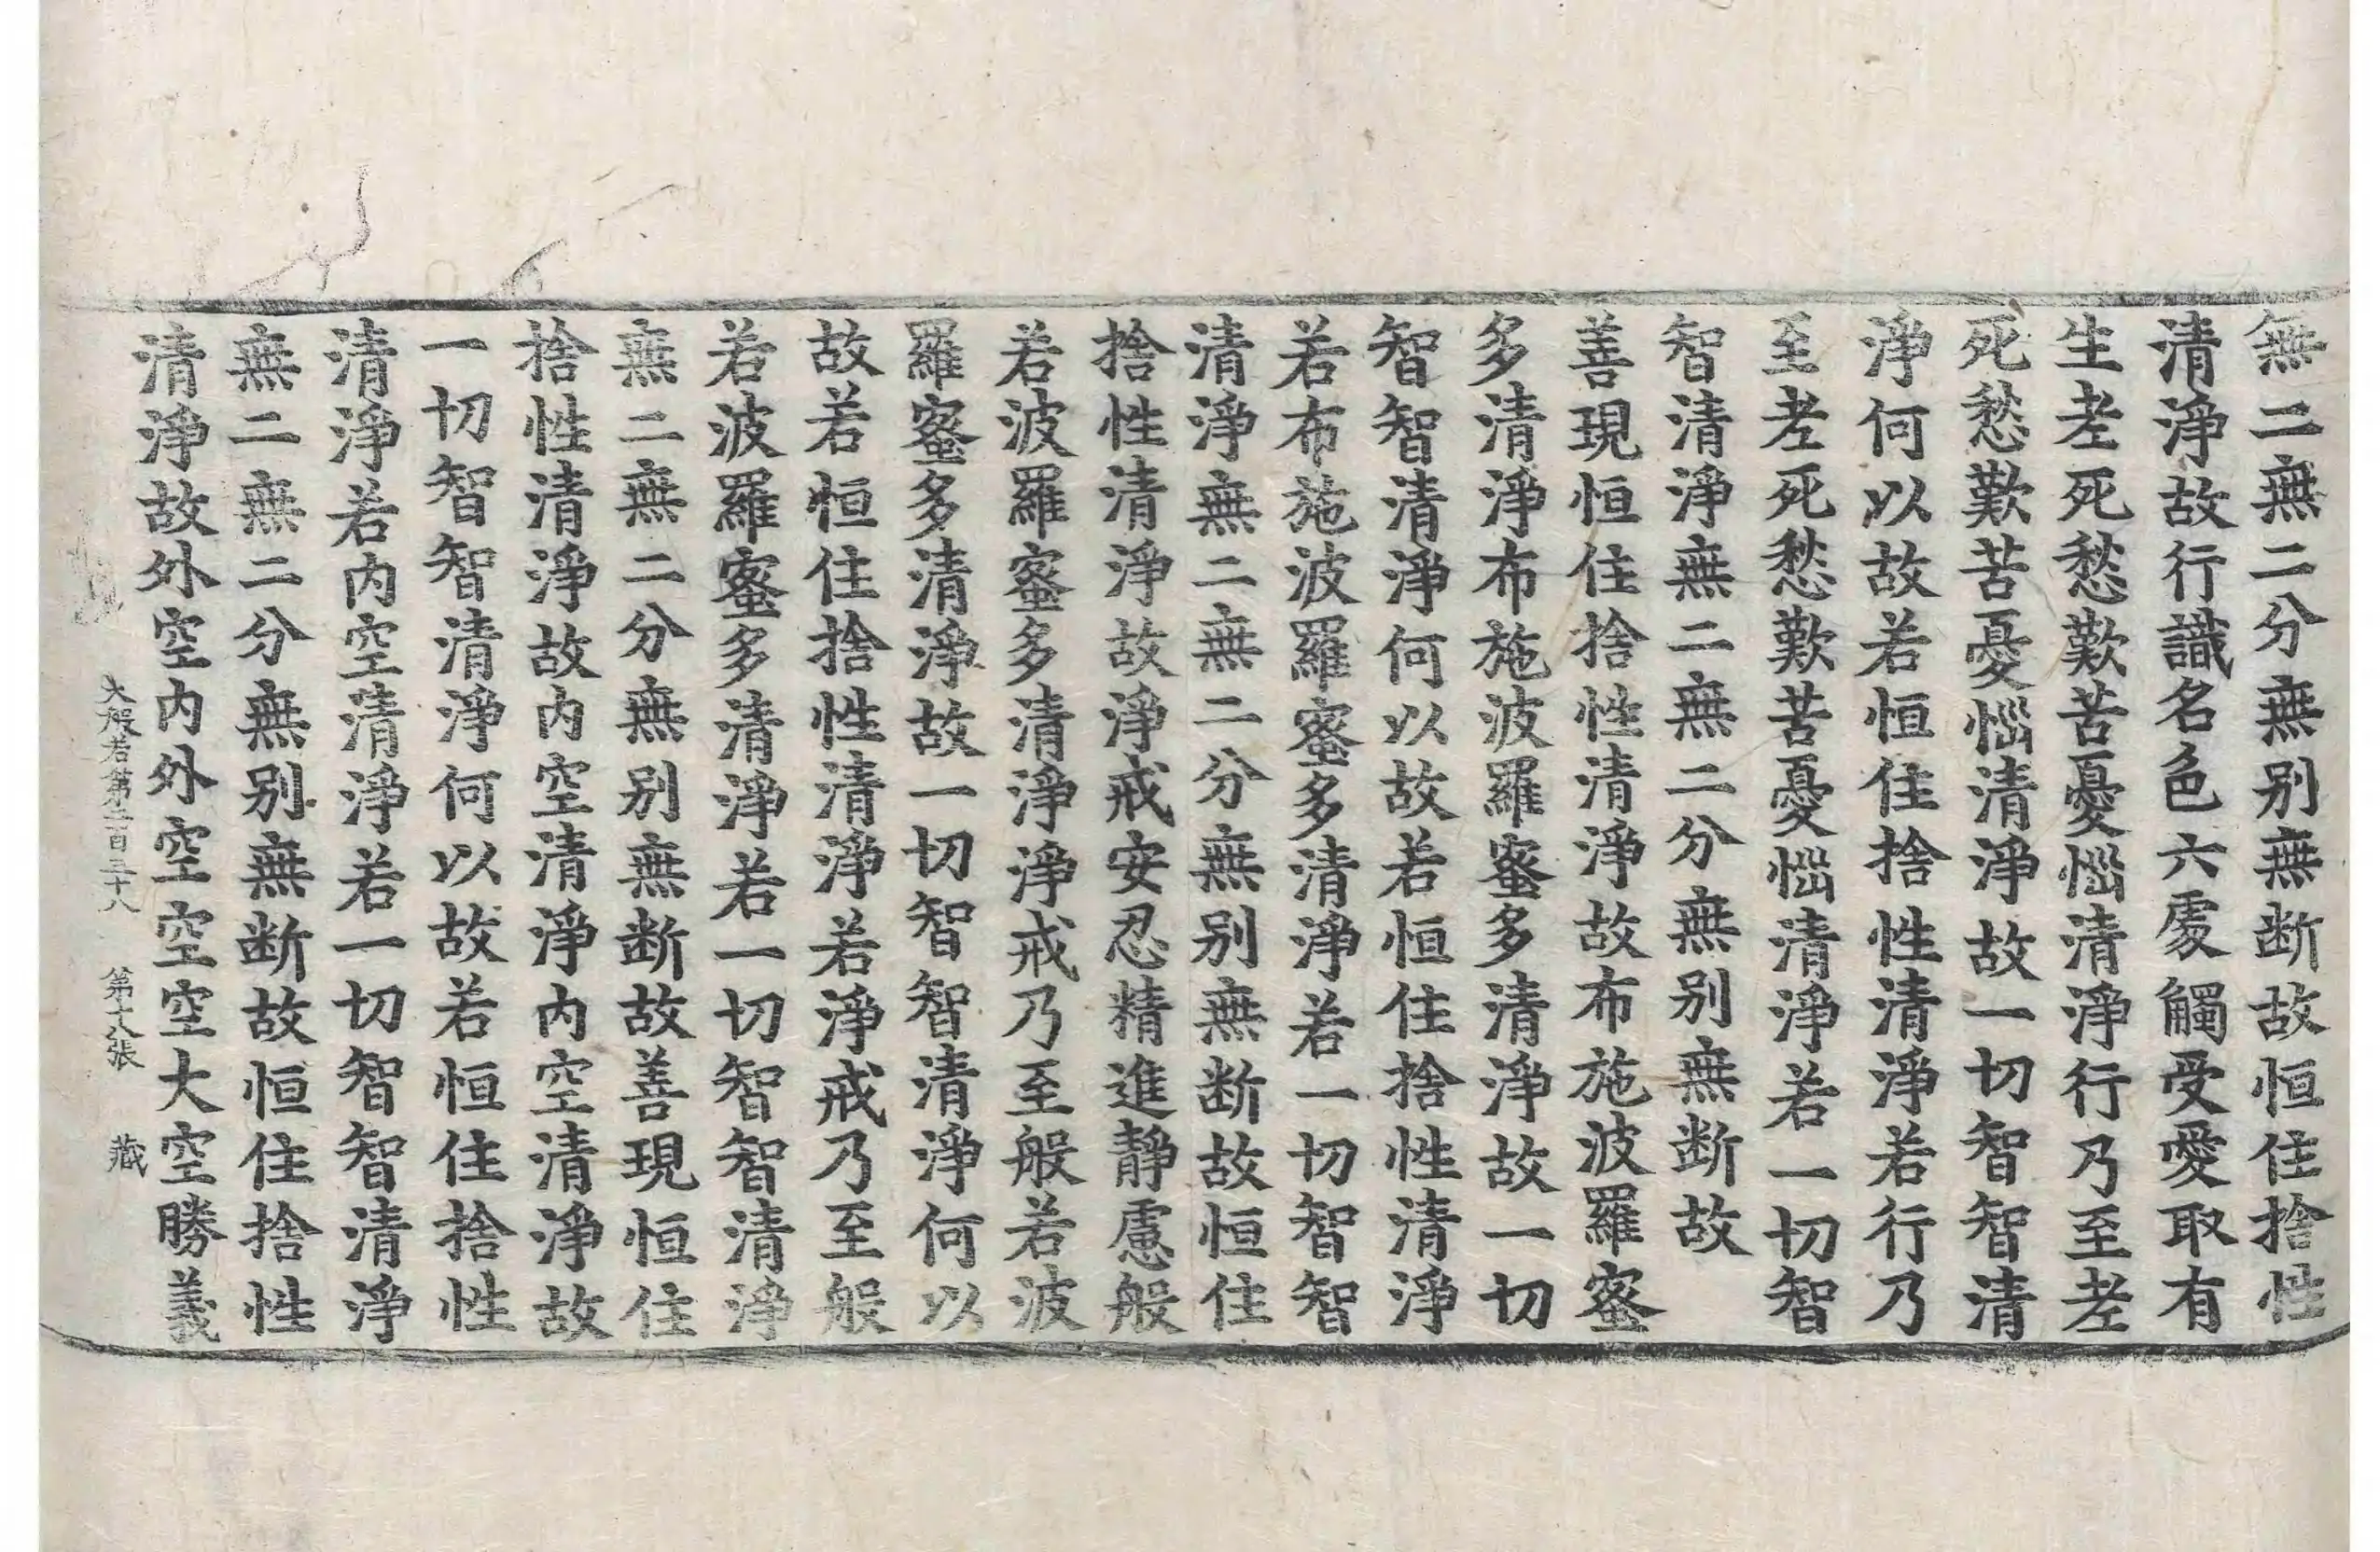 無二無二分無別無断故恒住捨性
清淨故行識名色六處觸受愛取有
生老死愁歎苦憂惱清淨行乃至老
死愁歎苦憂惱清淨故一切智智清
淨何以故若恒住捨性清淨若行乃
至老死愁歎苦憂惱清淨若一切智
智清淨無二無二分無別無断故
善現恒住捨性清淨故布施波羅蜜
多清淨布施波羅蜜多清淨故一切
智智清淨何以故若恒住捨性清淨
若布施波羅蜜多清淨若一切智智
清淨無二無二分無別無断故恒住
捨性清淨故淨戒安忍精進靜慮般
若波羅蜜多清淨淨戒乃至般若波
羅蜜多清淨故一切智智清淨何以
故若恒住捨性清淨若淨戒乃至般
若波羅蜜多清淨若一切智智清淨
無二無二分無別無断故善現恒住
捨性清淨故内空清淨内空清淨故
一切智智清淨何以故若恒住捨性
清淨若内空清淨若一切智智清淨
無二無二分無別無断故恒住捨性
清淨故外空内外空空空大空勝義
大般若第二百三十八 第十八張 藏